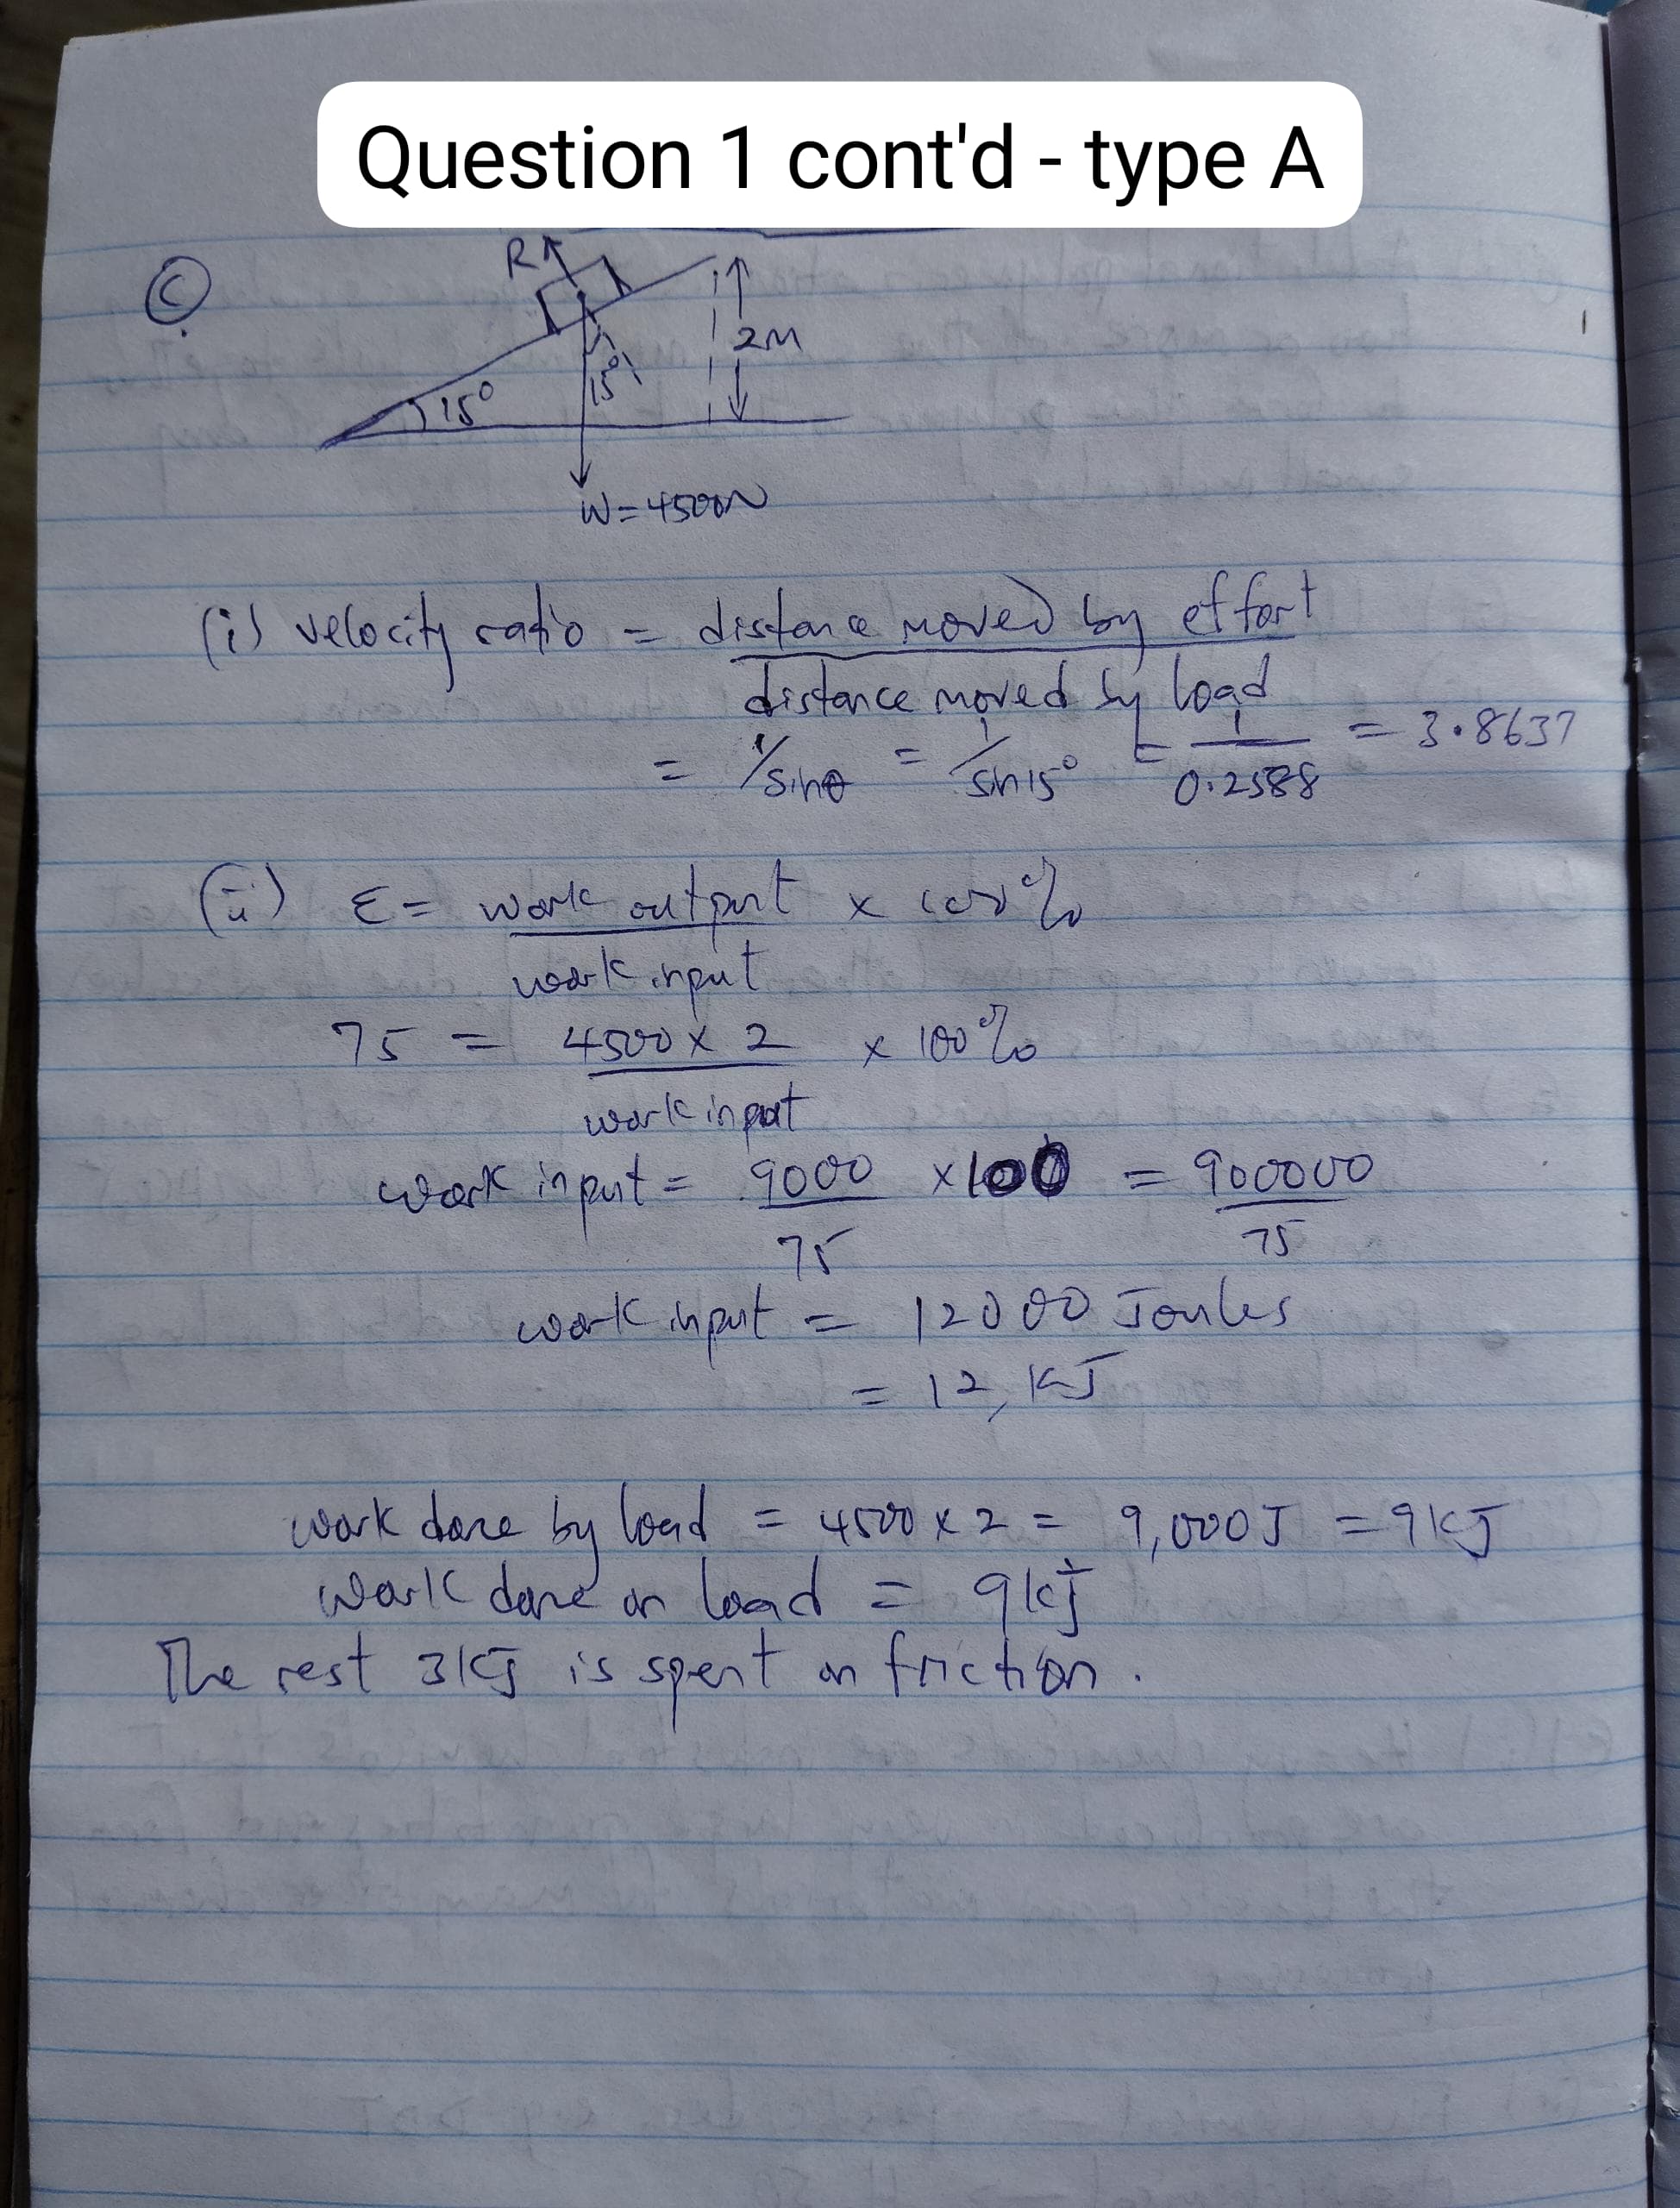 Question 1 cont'd - type A
(c)
R
2M
15°
15°
W = 4500N
(i) velocity ratio = distance moved by effort
distance moved by load
= 1/sinθ = 1/sin15° = 1/0.2588 = 3.8637
(ii) ε = work output x 100%
work input
75 = 4500 x 2 x 100%
work input
work input = 9000 x 100 = 900000
75 75
work input = 12000 Joules
= 12, KJ
work done by load = 4500 x 2 = 9,000J = 9KJ
Work done on load = 9kJ
The rest 3KJ is spent on friction.